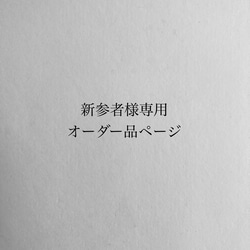 新参者様専用
オーダー品ページ